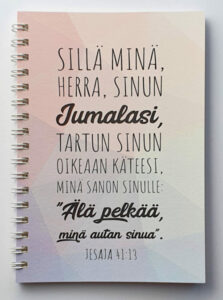 SILLÄ MINÄ,
HERRA, SINUN
Jumalasi,
TARTUN SINUN
OIKEAAN KÄTEESI,
MINÄ SANON SINULLE:
"Älä pelkää,
minä autan sinua".
JESAJA 41:13